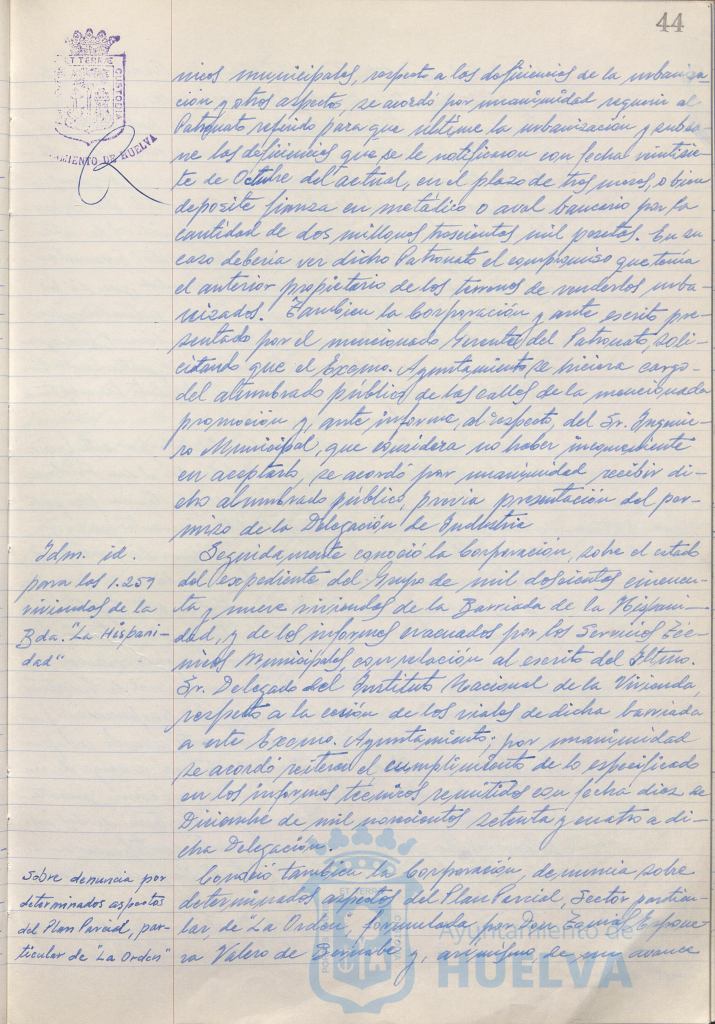 44
ET TERRAE
CUSTODIA
AMIENTO DE HUELVA
nicos municipales, respecto a las deficiencias de la urbaniza-
ción y otros aspectos, se acordó por unanimidad requerir al
Patronato referido para que ultime la urbanización y subsa-
ne las deficiencias que se le notificaron con fecha veintisie-
te de Octubre del actual, en el plazo de tres meses, o bien
deposite fianza en metálico o aval bancario por la
cantidad de dos millones trescientas mil pesetas. En su
caso debería ver dicho Patronato el compromiso que tenía
el anterior propietario de los terrenos de venderlos urba-
nizados. Tambien la Corporación y ante escrito pre-
sentado por el mencionado Gerente del Patronato, soli-
citando que el Excmo. Ayuntamiento se hiciera cargo
del alumbrado público de las calles de la mencionada
promoción y, ante informe, al respecto, del Sr. Ingenie-
ro Municipal, que considera no haber inconveniente
en aceptarlo, se acordó por unanimidad recibir di-
cho alumbrado público, previa presentación del per-
miso de la Delegación de Industria
Idm. id.
para las 1.259
viviendas de la
Bda. "La Hispani-
dad"
Seguidamente conoció la Corporación, sobre el estado
del expediente del Grupo de mil doscientas cincuen-
ta y nueve viviendas de la Barriada de la Hispani-
dad, y de los informes evacuados por los Servicios Téc-
nicos Municipales, con relación al escrito del Iltmo.
Sr. Delegado del Instituto Nacional de la Vivienda,
respecto a la cesión de los viales de dicha barriada
a este Excmo. Ayuntamiento; por unanimidad
se acordó reiterar el cumplimiento de lo especificado
en los informes técnicos remitidos con fecha diez de
Diciembre de mil novecientos setenta y cuatro a di-
cha Delegación.
Sobre denuncia por
determinados aspectos
del Plan Parcial, par-
ticular de "La Orden"
Conoció tambien la Corporación, denuncia sobre
determinados aspectos del Plan Parcial, Sector particu-
lar, de "La Orden", formulada por Don
Valero de Bernabé y, asimismo, de un avance
Ayuntamiento de
HUELVA